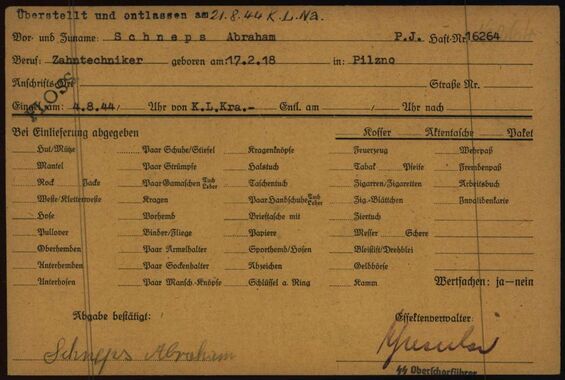 Überstellt und entlassen am 21.8.44 K.L.Na.
Vor- und Zuname: Schneps Abraham P.J. Haft-Nr. 16264
Beruf: Zahntechniker geboren am 17.2.18 in: Pilzno
Anschrifts-Ort: Straße Nr.
FLOSS
Eingel. am: 4.8.44 Uhr von K.L.Kra.- Entl. am Uhr nach
Bei Einlieferung abgegeben Koffer Aktentasche Paket
Hut/Mütze Paar Schuhe/Stiefel Kragenknöpfe Feuerzeug Wehrpaß
Mantel Paar Strümpfe Halstuch Tabak Pfeife Fremdenpaß
Rock Jacke Paar Gamaschen Tuch Leder Taschentuch Zigarren/Zigaretten Arbeitsbuch
Weste/Kletterweste Kragen Paar Handschuhe Tuch Leder Zig.-Blättchen Invalidenkarte
Hose Vorhemd Brieftasche mit Ziertuch
Pullover Binder/Fliege Papiere Messer Schere
Oberhemden Paar Ärmelhalter Sporthemd/Hosen Bleistift/Drehblei
Unterhemden Paar Sockenhalter Abzeichen Geldbörse
Unterhosen Paar Mansch.-Knöpfe Schlüssel a. Ring Kamm Wertsachen: ja—nein
Abgabe bestätigt: Effektenverwalter:
Schneps Abraham
SS Oberscharführer